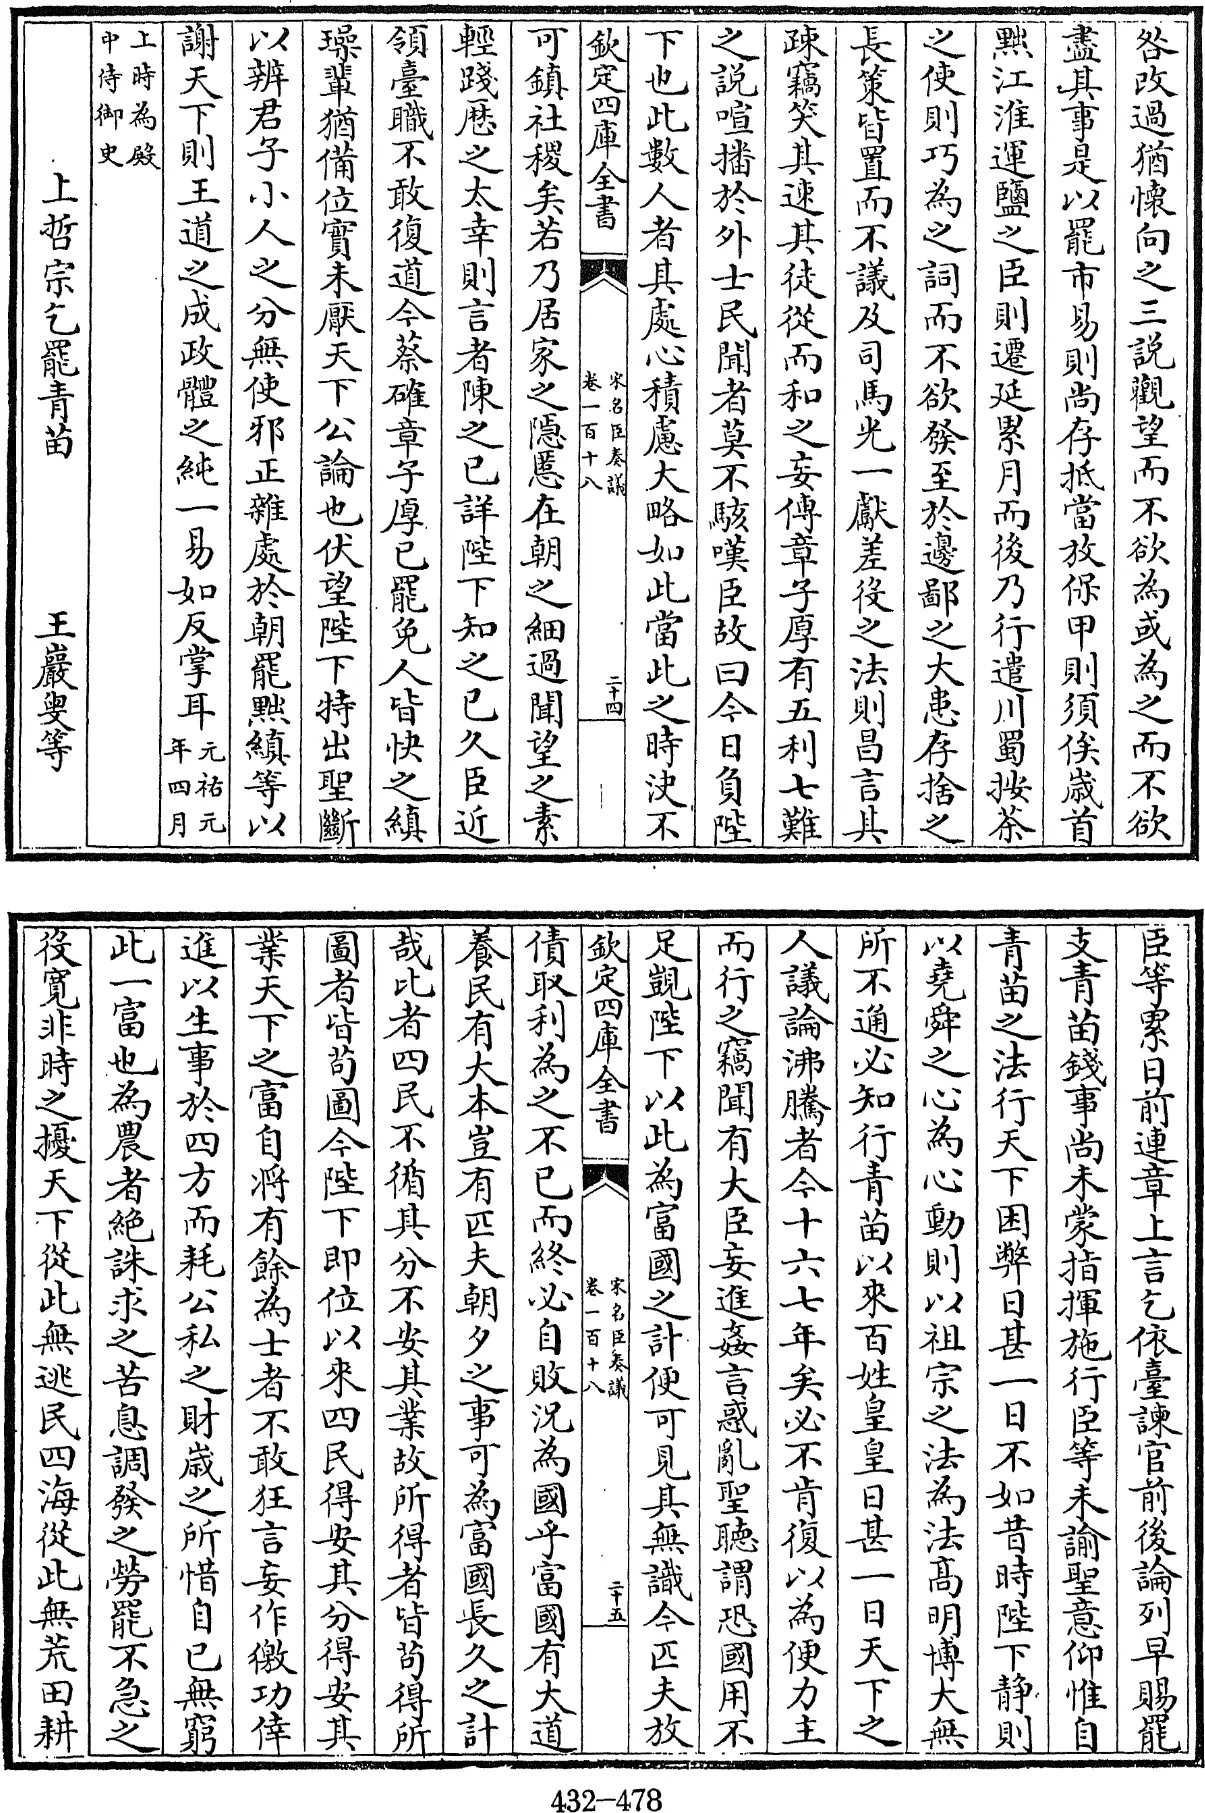 咎改過猶懷向之三說觀望而不欲為或為之而不欲
盡其事是以罷市易則尚存抵當放保甲則須俟歲首
黜江淮運鹽之臣則遷延累月而後乃行遣川蜀按茶
之使則巧為之詞而不欲發至於邊鄙之大患存捨之
長策皆置而不議及司馬光一獻差役之法則昌言其
疎竊笑其速其徒從而和之妄傳章子厚有五利七難
之說喧播於外士民聞者莫不駭嘆臣故曰今日負陛
下也此數人者其處心積慮大略如此當此之時決不
欽定四庫全書
宋名臣奏議
卷一百十八
二十四
可鎮社稷矣若乃居家之隱慝在朝之細過聞望之素
輕踐歷之太幸則言者陳之已詳陛下知之已久臣近
領臺職不敢復道今蔡確章子厚已罷免人皆快之縝
璪輩猶備位實未厭天下公論也伏望陛下特出聖斷
以辨君子小人之分無使邪正雜處於朝罷黜縝等以
謝天下則王道之成政體之純一易如反掌耳元祐元
年四月
上時為殿
中侍御史
上哲宗乞罷青苗　王巖叟等
臣等累日前連章上言乞依臺諫官前後論列早賜罷
支青苗錢事尚未蒙指揮施行臣等未諭聖意仰惟自
青苗之法行天下困弊日甚一日不如昔時陛下靜則
以堯舜之心為心動則以祖宗之法為法高明博大無
所不通必知行青苗以來百姓皇皇日甚一日天下之
人議論沸騰者今十六七年矣必不肯復以為便力主
而行之竊聞有大臣妄進姦言惑亂聖聽謂恐國用不
足覬陛下以此為富國之計便可見其無識今匹夫放
欽定四庫全書
宋名臣奏議
卷一百十八
二十五
債取利為之不已而終必自敗況為國乎富國有大道
養民有大本豈有匹夫朝夕之事可為富國長久之計
哉比者四民不循其分不安其業故所得者皆茍得所
圖者皆茍圖今陛下即位以來四民得安其分得安其
業天下之富自將有餘為士者不敢狂言妄作徼功倖
進以生事於四方而耗公私之財歲之所惜自已無窮
此一富也為農者絕誅求之苦息調發之勞罷不急之
役寬非時之擾天下從此無逃民四海從此無荒田耕
432-478